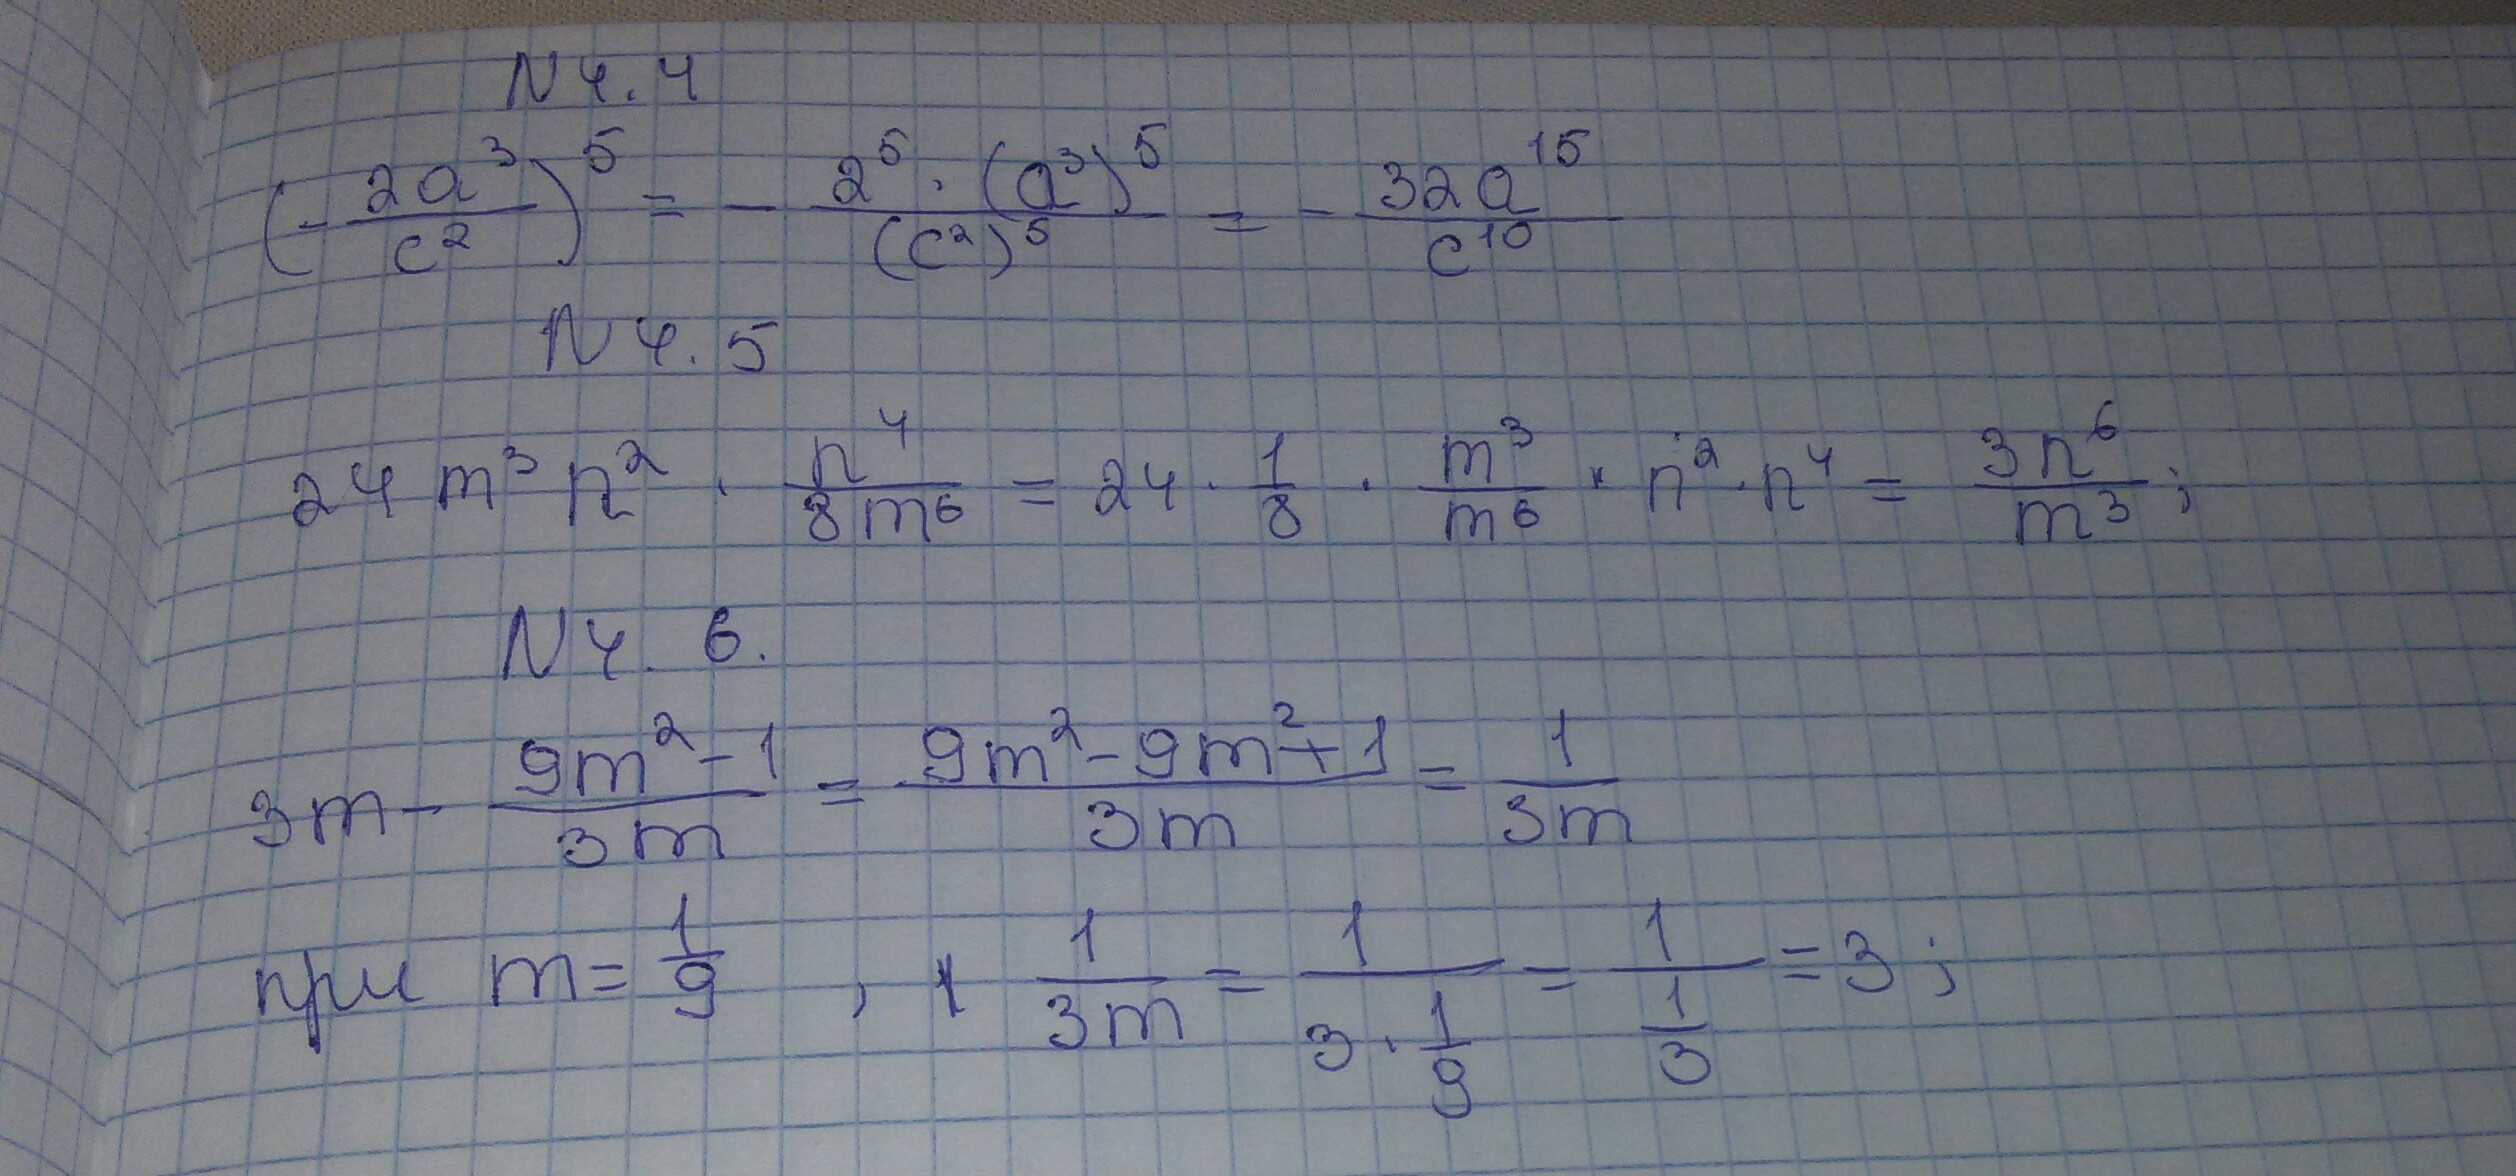 N 4.4
(-2a³/c²)⁵ = - 2⁵·(a³)⁵/(c²)⁵ = - 32a¹⁵/c¹⁰
N 4.5
24 m³ n² · n⁴/8m⁶ = 24 · 1/8 · m³/m⁶ · n² · n⁴ = 3n⁶/m³;
N 4. 6.
3m - 9m²-1/3m = 9m²-9m²+1/3m = 1/3m
при m = 1/9 , 1/3m = 1/3·1/9 = 1/1/3 = 3;